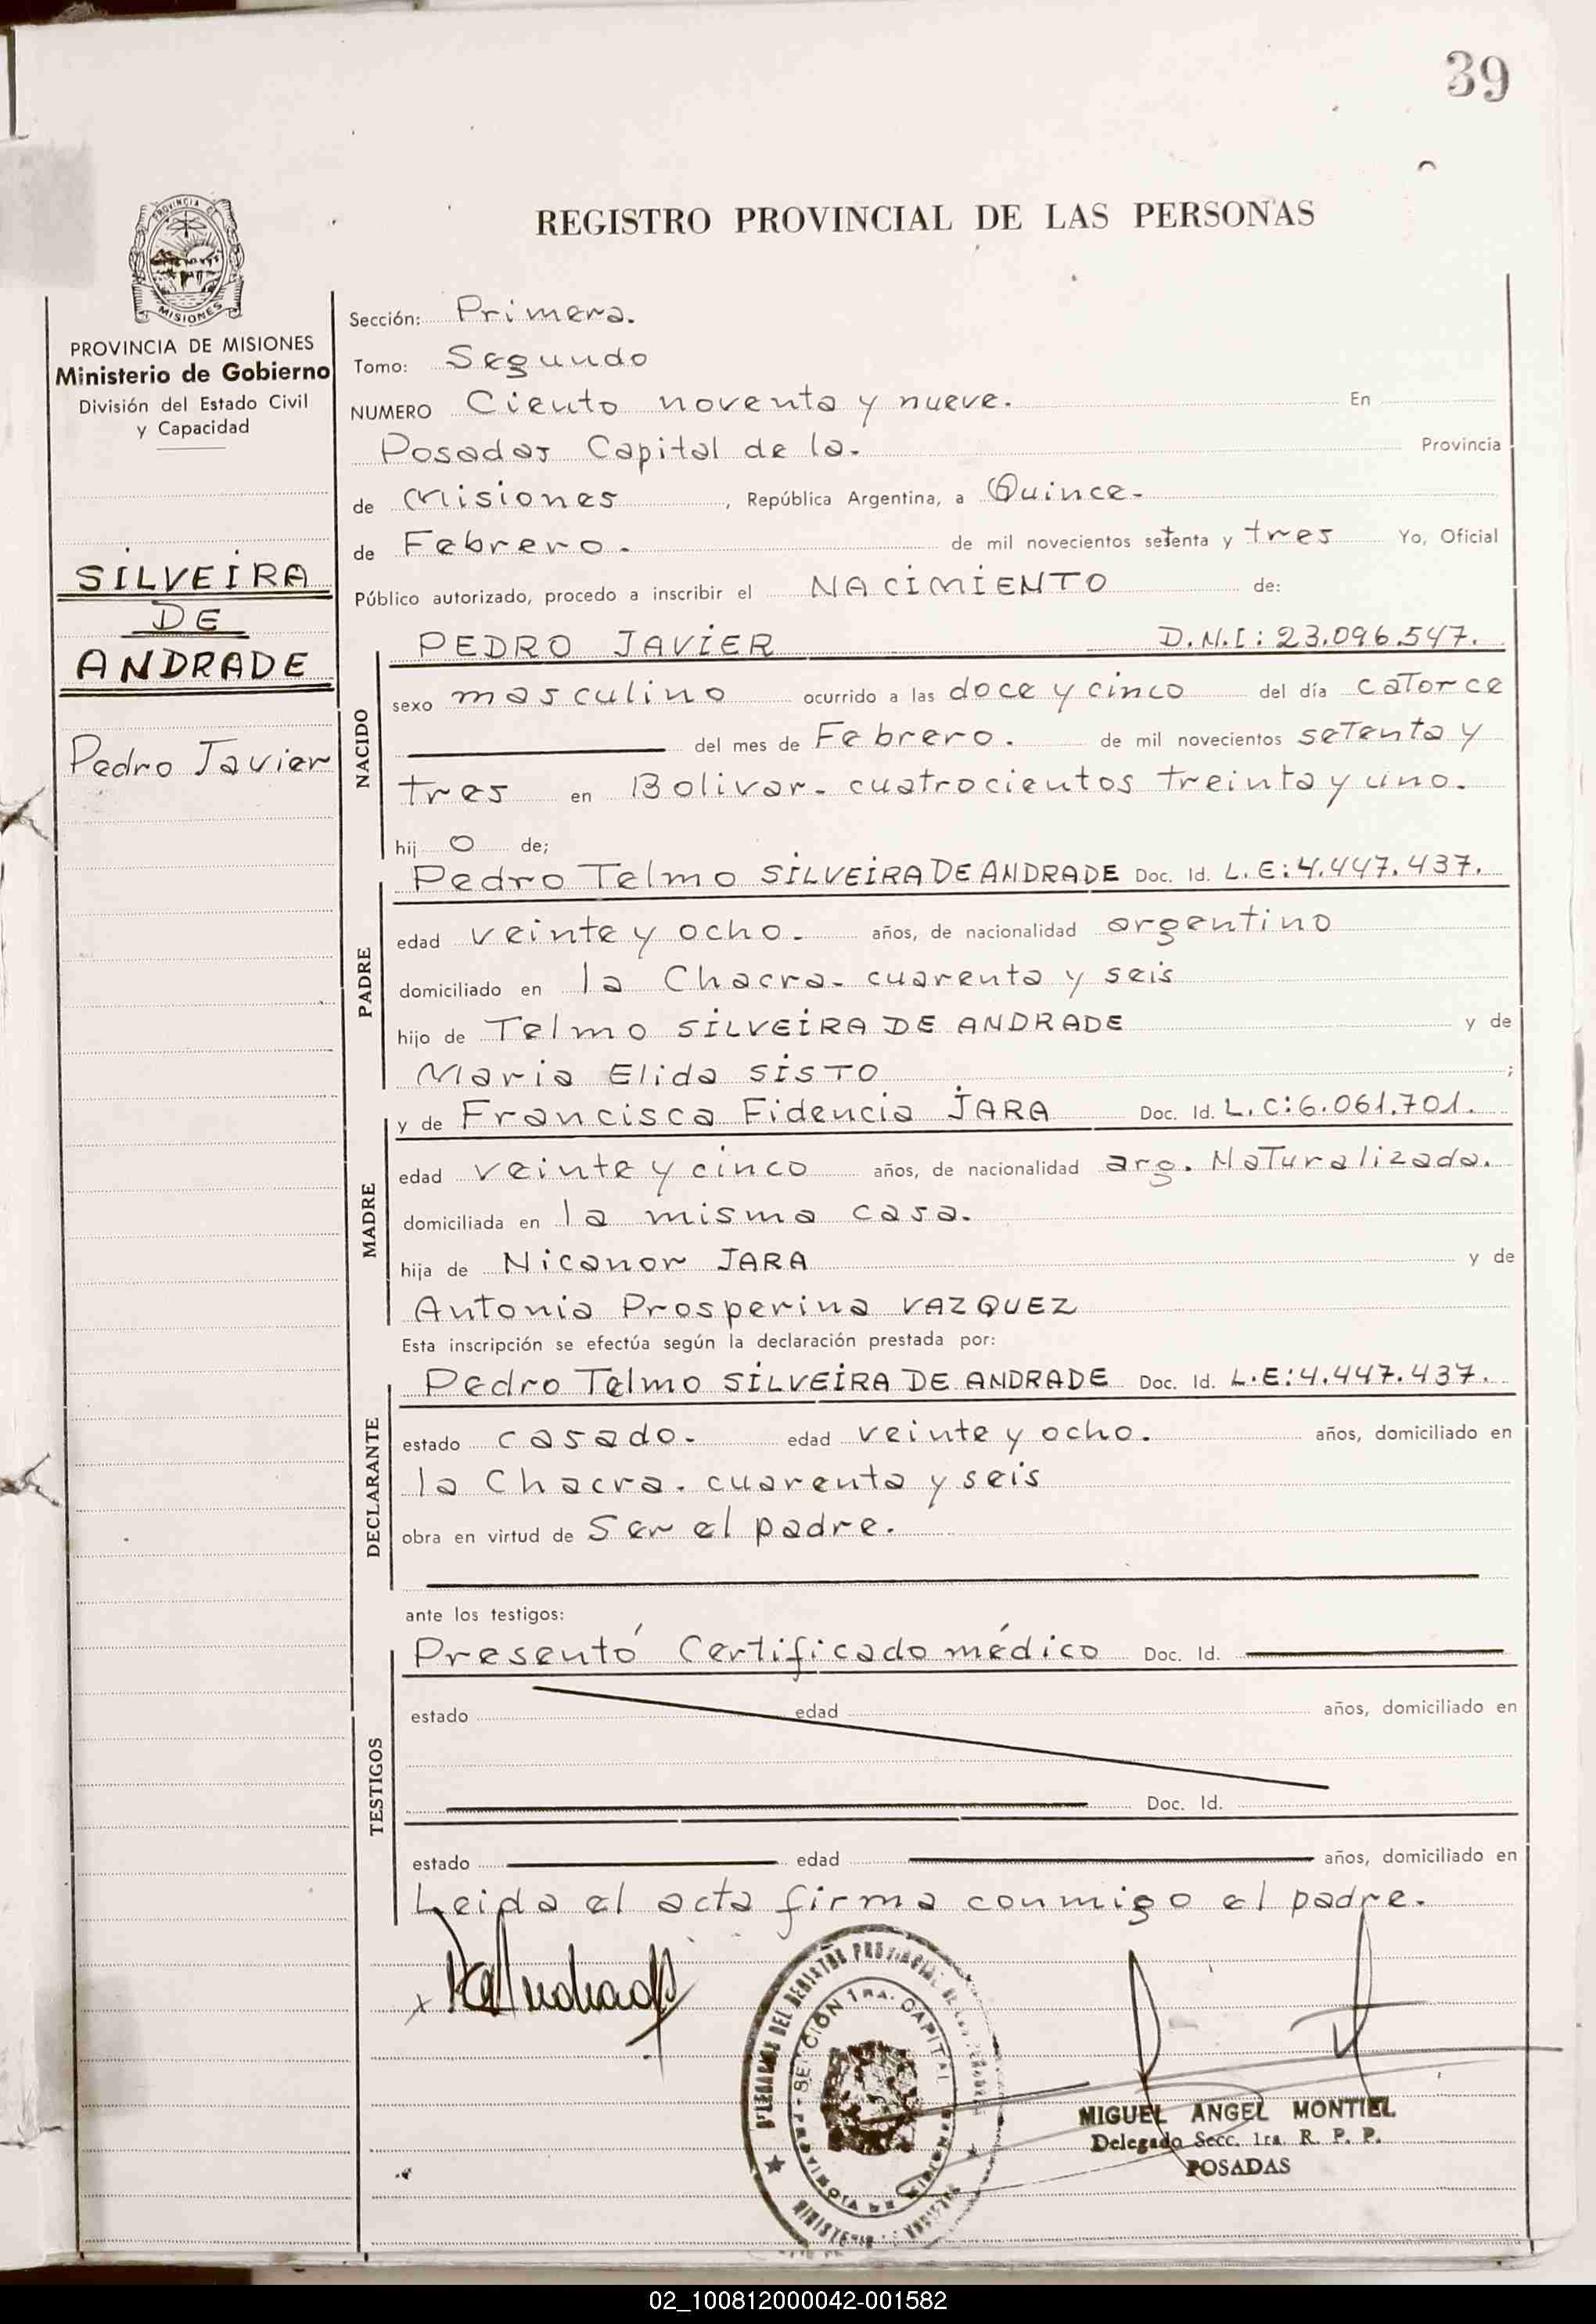 39
PROVINCIA DE
MISIONES
REGISTRO PROVINCIAL DE LAS PERSONAS
PROVINCIA DE MISIONES
Ministerio de Gobierno
División del Estado Civil
y Capacidad
SILVEIRA
DE
ANDRADE
Pedro Javier
Sección: Primera.
Tomo: Segundo
NUMERO Ciento noventa y nueve. En
Posadas Capital de la. Provincia
de Misiones, República Argentina, a Quince.
de Febrero. de mil novecientos setenta y tres Yo, Oficial
Público autorizado, procedo a inscribir el NACIMIENTO de:
NACIDO
PEDRO JAVIER D.N.I: 23.096.547.
sexo masculino ocurrido a las doce y cinco del día catorce
del mes de Febrero. de mil novecientos setenta y
tres en Bolivar. cuatrocientos treinta y uno.
hij o de;
PADRE
Pedro Telmo SILVEIRA DE ANDRADE Doc. Id. L.E: 4.447.437.
edad veinte y ocho. años, de nacionalidad argentino
domiciliado en la Chacra. cuarenta y seis
hijo de Telmo SILVEIRA DE ANDRADE y de
Maria Elida SISTO ;
MADRE
y de Francisca Fidencia JARA Doc. Id. L.C: 6.061.701.
edad veinte y cinco años, de nacionalidad arg. Naturalizada.
domiciliada en la misma casa.
hija de Nicanor JARA y de
Antonia Prosperina VAZQUEZ
Esta inscripción se efectúa según la declaración prestada por:
DECLARANTE
Pedro Telmo SILVEIRA DE ANDRADE Doc. Id. L.E: 4.447.437.
estado casado. edad veinte y ocho. años, domiciliado en
la Chacra. cuarenta y seis
obra en virtud de Ser el padre.
ante los testigos:
TESTIGOS
Presentó Certificado médico Doc. Id.
estado edad años, domiciliado en
Doc. Id.
estado edad años, domiciliado en
Leida el acta firma conmigo el padre.
x
SECCION 1RA. CAPITAL
PROVINCIA DE MISIONES
MIGUEL ANGEL MONTIEL
Delegado Secc. 1ra. R. P. P.
POSADAS
02_100812000042-001582